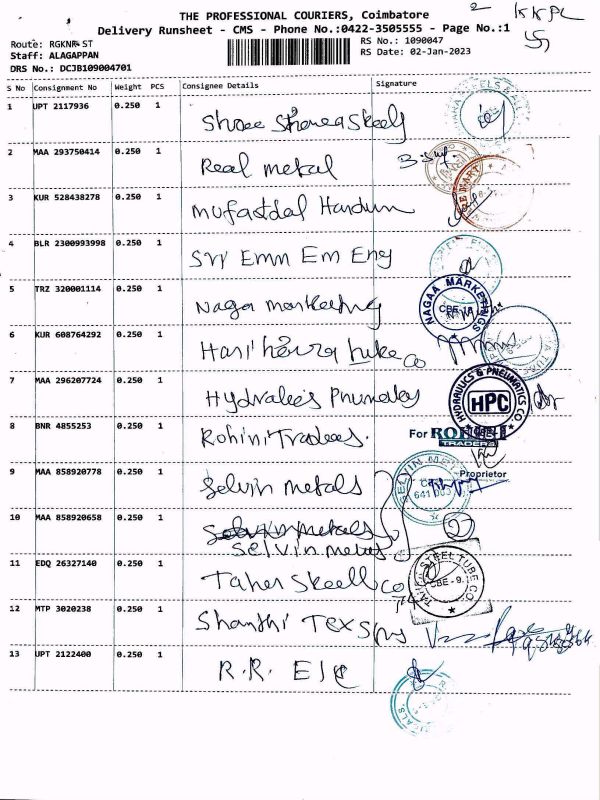 THE PROFESSIONAL COURIERS, Coimbatore
2 KKPL
Delivery Runsheet - CMS - Phone No.:0422-3505555 - Page No.:1
Route: RGKNR ST
RS No.: 1090047
Staff: ALAGAPPAN
RS Date: 02-Jan-2023
DRS No.: DCJB109004701
S No Consignment No Weight PCS Consignee Details Signature
1 UPT 2117936 0.250 1
2 MAA 293750414 0.250 1 Real metal
3 KUR 528438278 0.250 1 mufaddal Hardum
4 BLR 2300993998 0.250 1 Sri Emm Em Eng
5 TRZ 320001114 0.250 1 Naga marketing
NAGAA MARKETINGS
6 KUR 608764292 0.250 1 Hari tube Co
7 MAA 296207724 0.250 1
HYDRAULICS & PNEUMATICS CO.
HPC
8 BNR 4855253 0.250 1 Rohini Traders.
For ROHINI
TRADERS
Proprietor
9 MAA 858920778 0.250 1 Selvin metals
SELVIN METALS
641 003
10 MAA 858920658 0.250 1
Selvin metals
11 EDQ 26327140 0.250 1 Taher Co
STEEL TUBE CO.
CBE - 9.
12 MTP 3020238 0.250 1 Shanthi Tex
13 UPT 2122400 0.250 1 R.R. Ele